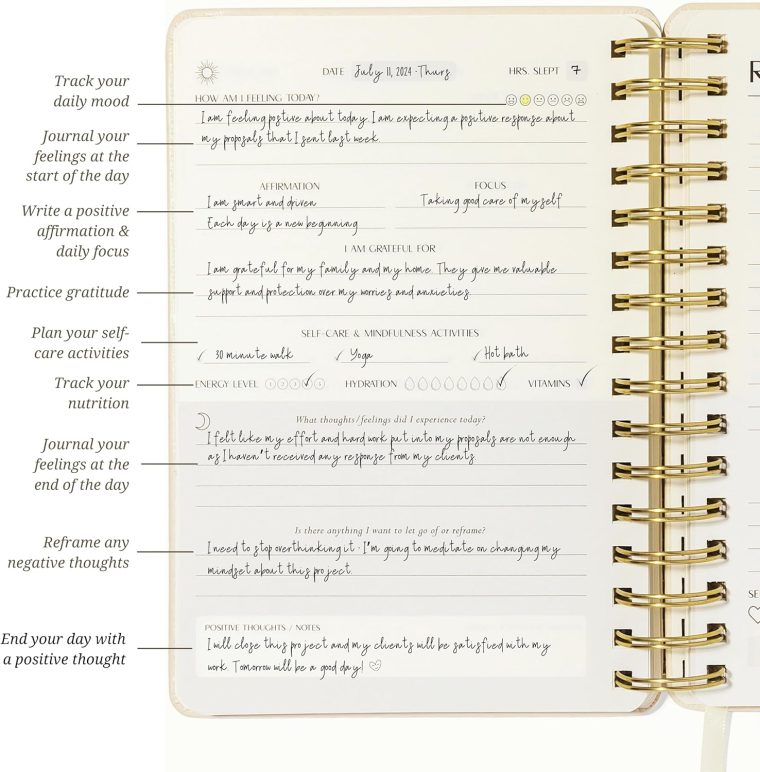 Track your
daily mood
Journal your
feelings at the
start of the day
Write a positive
affirmation &
daily focus
Practice gratitude
Plan your self-
care activities
Track your
nutrition
Journal your
feelings at the
end of the day
Reframe any
negative thoughts
End your day with
a positive thought
DATE July 11, 2024 · Thurs HRS. SLEPT 7
HOW AM I FEELING TODAY?
I am feeling postive about today. I am expecting a positive response about
my proposals that I sent last week.
AFFIRMATION FOCUS
I am smart and driven Taking good care of myself
Each day is a new beginning
I AM GRATEFUL FOR
I am grateful for my family and my home. They give me valuable
support and protection over my worries and anxieties.
SELF-CARE & MINDFULNESS ACTIVITIES
✓ 30 minute walk ✓ Yoga ✓ Hot bath
ENERGY LEVEL 1 2 3 4 5 HYDRATION VITAMINS ✓
What thoughts/feelings did I experience today?
I felt like my effort and hard work put into my proposals are not enough
as I haven't received any response from my clients.
Is there anything I want to let go of or reframe?
I need to stop overthinking it · I'm going to meditate on changing my
mindset about this project.
POSITIVE THOUGHTS / NOTES
I will close this project and my clients will be satisfied with my
work. Tomorrow will be a good day!